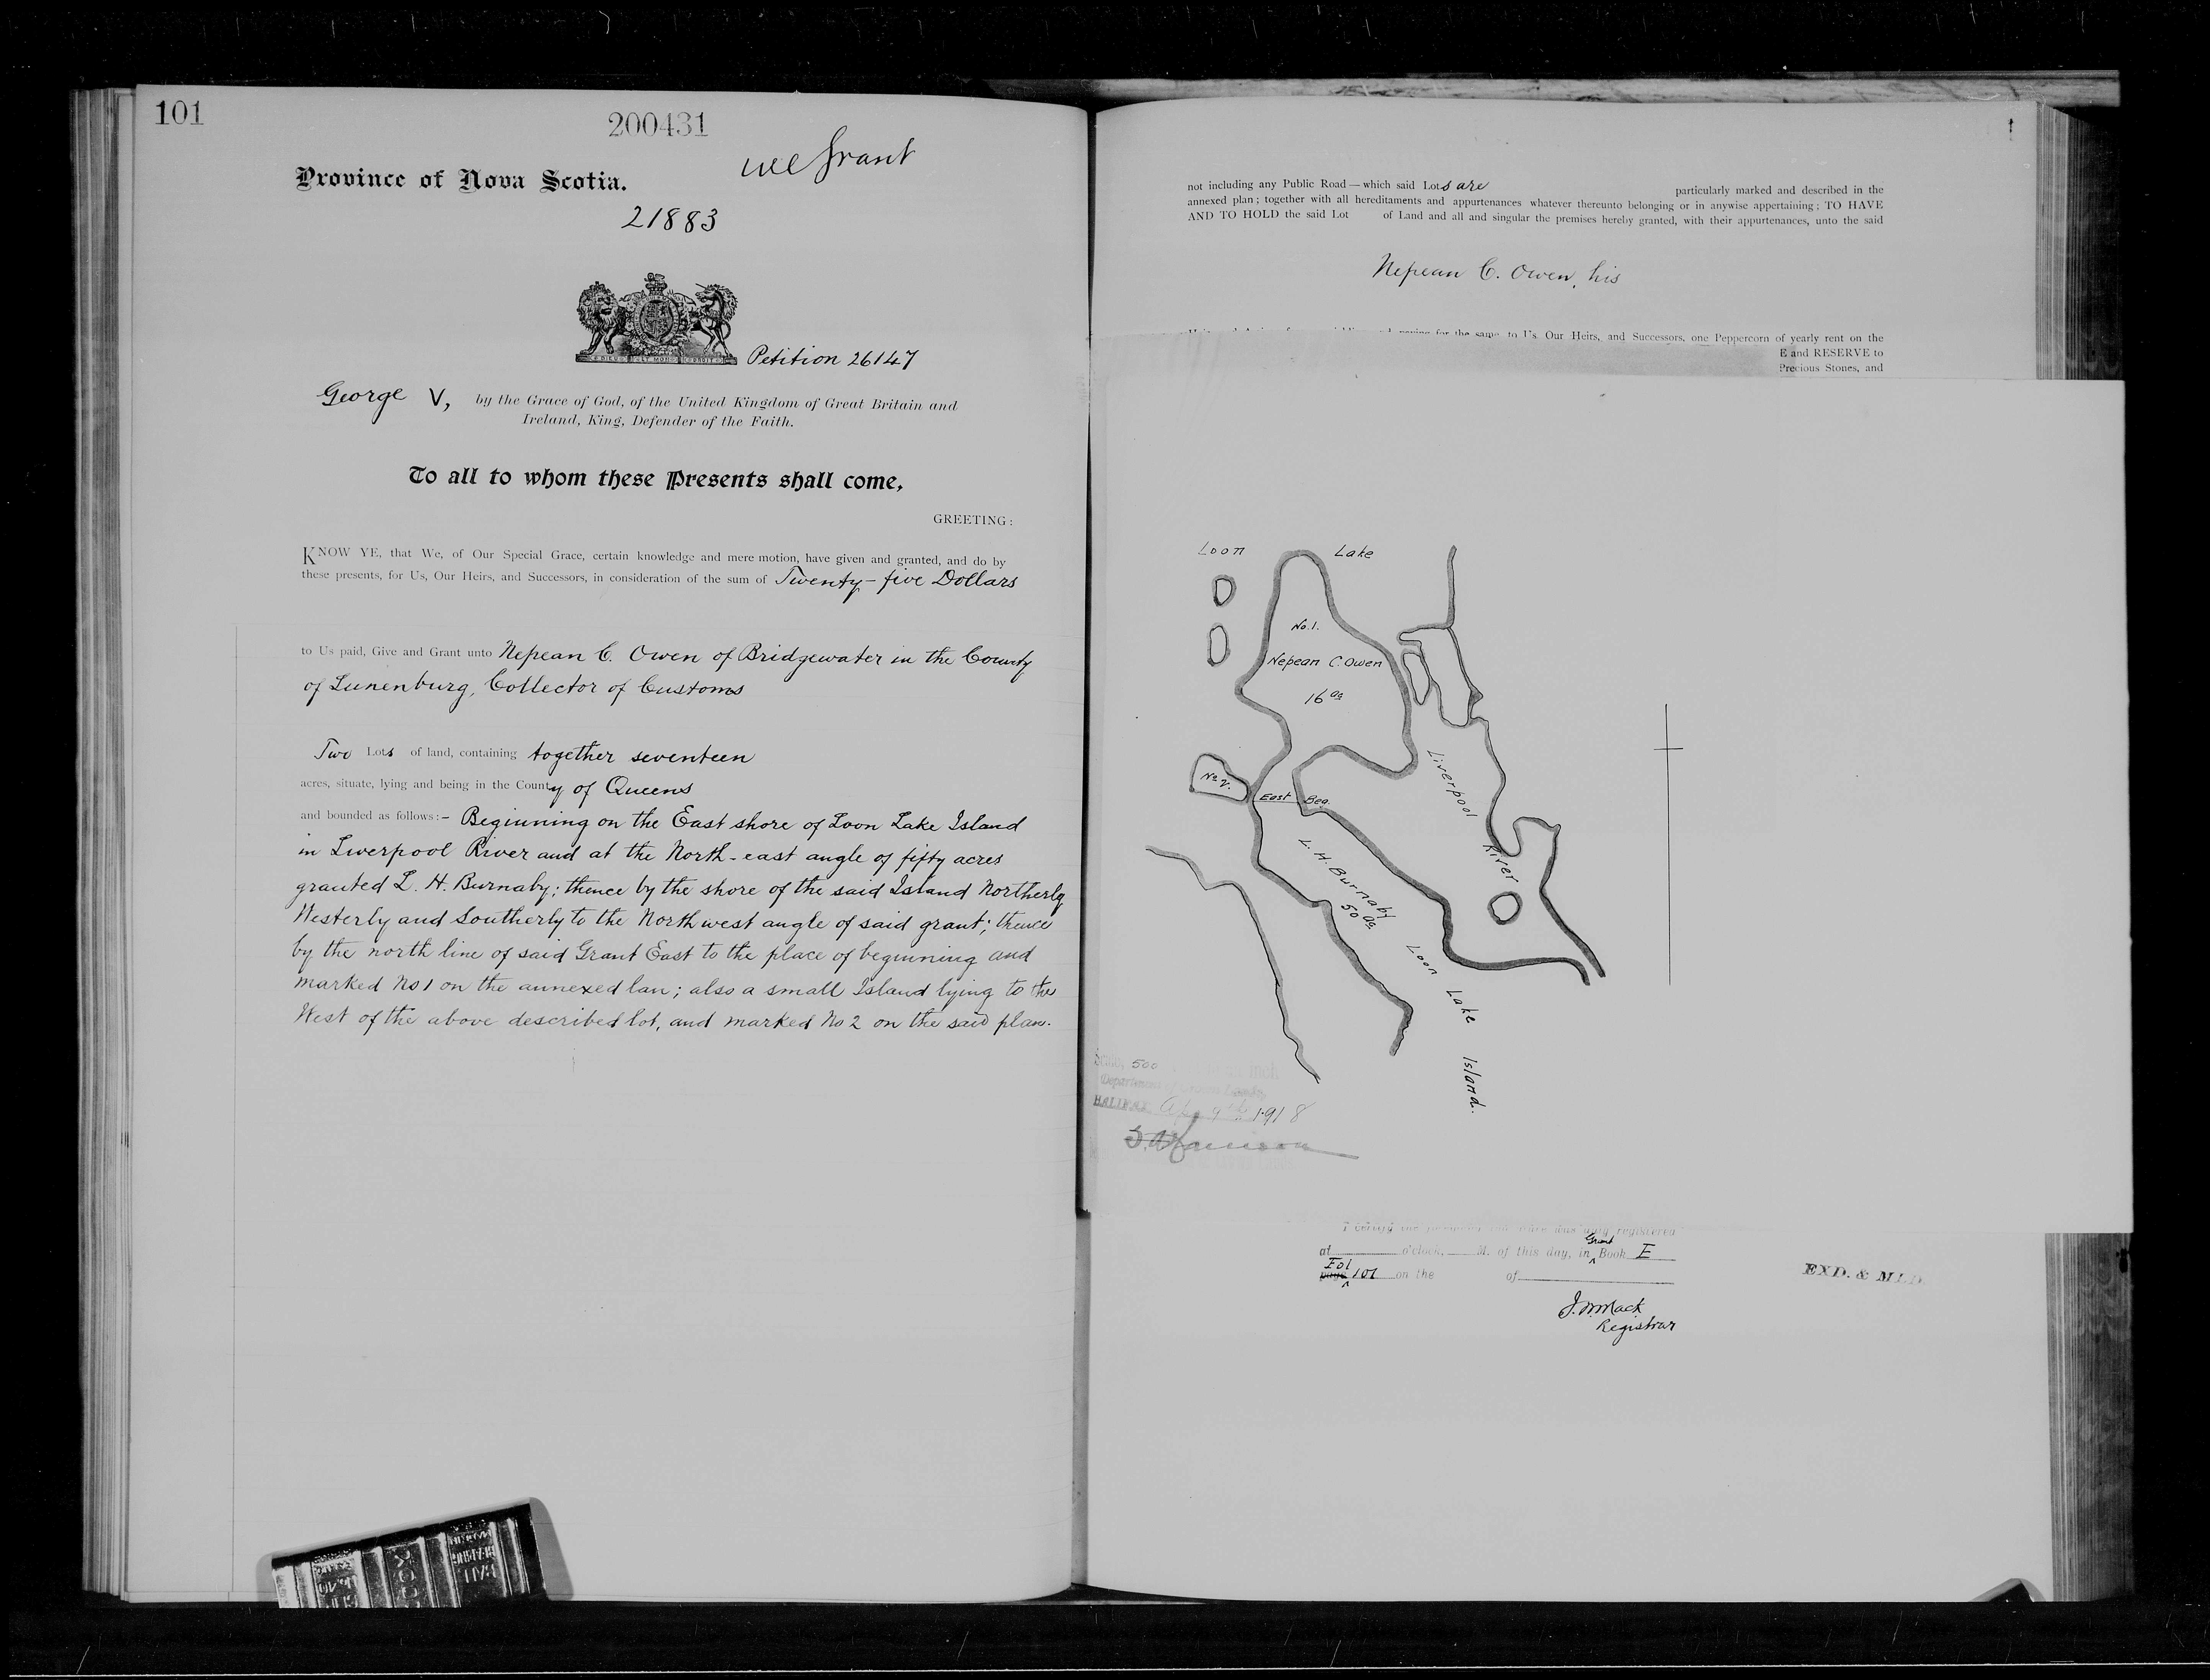 101
200431
Grant
Province of Nova Scotia.
21883
Petition 26147
George V, by the Grace of God, of the United Kingdom of Great Britain and
Ireland, King, Defender of the Faith.
To all to whom these Presents shall come,
GREETING:
KNOW YE, that We, of Our Special Grace, certain knowledge and mere motion, have given and granted, and do by
these presents, for Us, Our Heirs, and Successors, in consideration of the sum of Twenty-five Dollars
to Us paid, Give and Grant unto Nepean C. Owen of Bridgewater in the County
of Lunenburg, Collector of Customs
Two Lots of land, containing together seventeen
acres, situate, lying and being in the County of Queens
and bounded as follows:- Beginning on the East shore of Loon Lake Island
in Liverpool River and at the North-east angle of fifty acres
granted L. H. Burnaby; thence by the shore of the said Island Northerly
Westerly and Southerly to the North west angle of said grant; thence
by the north line of said Grant East to the place of beginning and
marked No 1 on the annexed lan; also a small Island lying to the
West of the above described lot, and marked No 2 on the said plan.
not including any Public Road — which said Lots are particularly marked and described in the
annexed plan; together with all hereditaments and appurtenances whatever thereunto belonging or in anywise appertaining; TO HAVE
AND TO HOLD the said Lot of Land and all and singular the premises hereby granted, with their appurtenances, unto the said
Nepean C. Owen, his
for the same, to Us, Our Heirs, and Successors, one Peppercorn of yearly rent on the
E and RESERVE to
Precious Stones, and
Loon Lake
No. 1.
Nepean C. Owen
16 as
No 2.
East Beg.
Liverpool
River
L. H. Burnaby
50 as
Loon Lake Island.
500 Inch
HALIFAX 1918
duly registered
at o'clock, M. of this day, in Grant Book E
Fol 101 on the of
J. W. Mack
Registrar
EXD. &